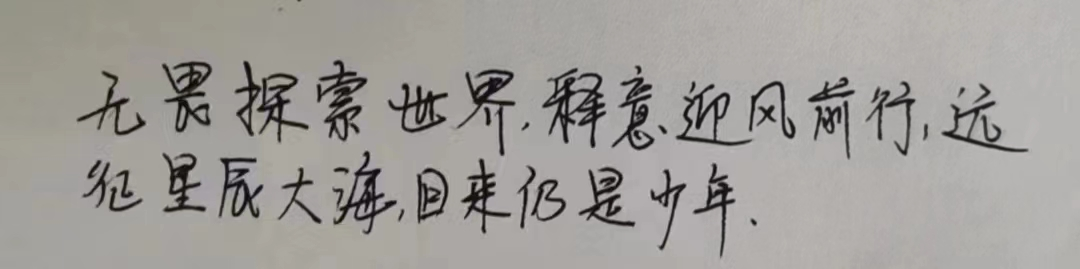 无畏探索世界,释意迎风前行,远
征星辰大海,目来仍是少年.